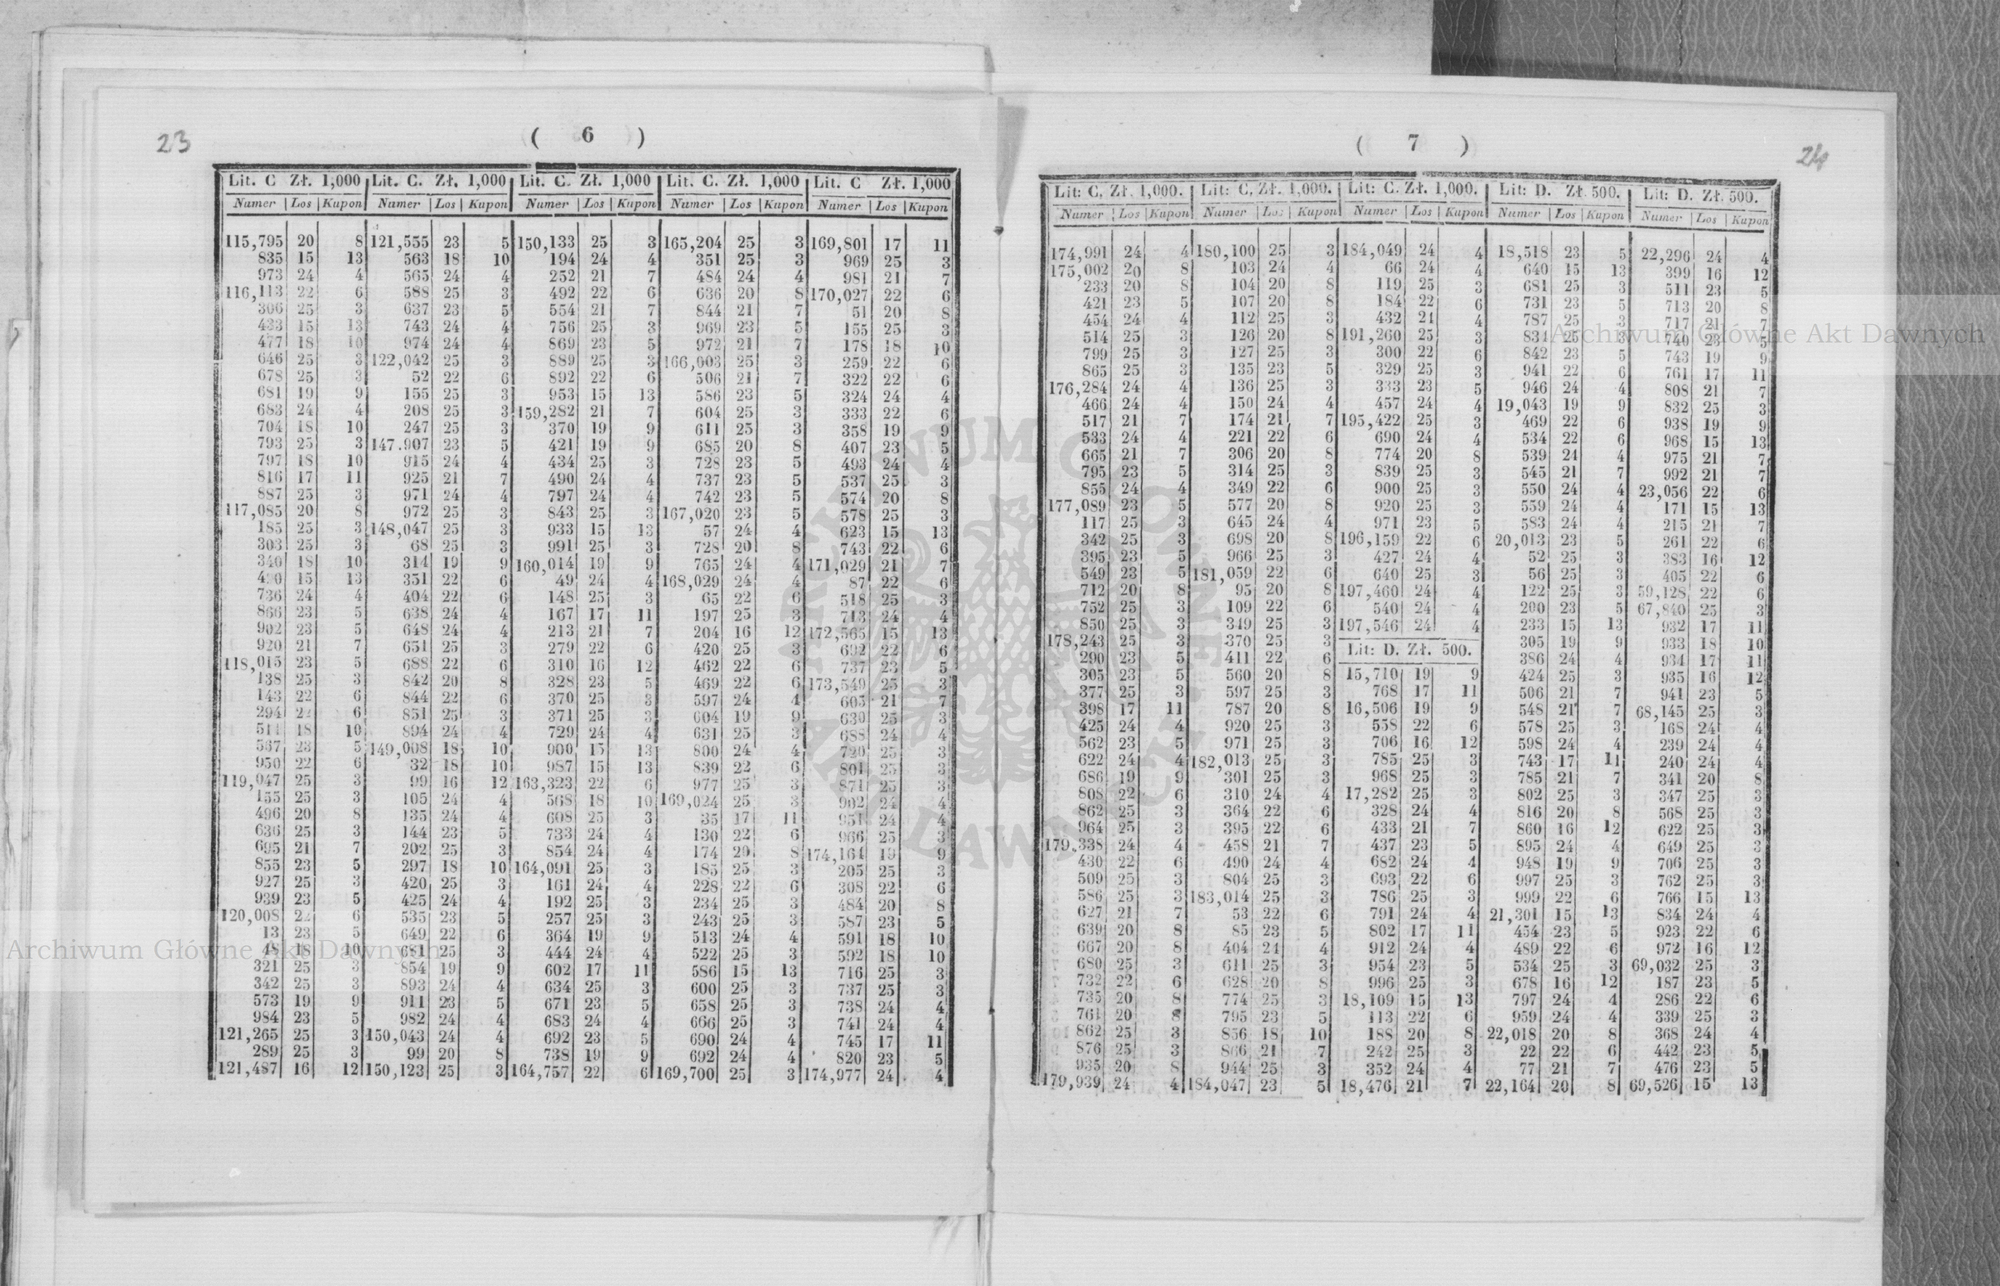 23
( 6 )
Lit. C Zł. 1,000 Lit. C. Zł. 1,000 Lit. C. Zł. 1,000 Lit. C. Zł. 1,000 Lit. C Zł. 1,000
Numer Los Kupon Numer Los Kupon Numer Los Kupon Numer Los Kupon Numer Los Kupon
115,795 20 8 121,555 23 5 150,133 25 3 165,204 25 3 169,801 17 11
835 15 13 563 18 10 194 24 4 351 25 3 969 25 3
973 24 4 565 24 4 252 21 7 484 24 4 981 21 7
116,113 22 6 588 25 3 492 22 6 636 20 8 170,027 22 6
306 25 3 637 23 5 554 21 7 844 21 7 51 20 8
433 15 13 743 24 4 756 25 3 969 23 5 155 25 3
477 18 10 974 24 4 869 23 5 972 21 7 178 18 10
646 25 3 122,042 25 3 889 25 3 166,003 25 3 259 22 6
678 25 3 52 22 6 892 22 6 506 21 7 322 22 6
681 19 9 155 25 3 953 15 13 586 23 5 324 24 4
683 24 4 208 25 3 159,282 21 7 604 25 3 333 22 6
704 18 10 247 25 3 370 19 9 611 25 3 358 19 9
793 25 3 147.907 23 5 421 19 9 685 20 8 407 23 5
797 18 10 915 24 4 434 25 3 728 23 5 493 24 4
816 17 11 925 21 7 490 24 4 737 23 5 537 25 3
887 25 3 971 24 4 797 24 4 742 23 5 574 20 8
117,085 20 8 972 25 3 843 25 3 167,020 23 5 578 25 3
185 25 3 148,047 25 3 933 15 13 57 24 4 623 15 13
303 25 3 68 25 3 991 25 3 728 20 8 743 22 6
340 18 10 314 19 9 160,014 19 9 765 24 4 171,029 21 7
15 13 351 22 6 49 24 4 168,029 24 4 87 22 6
736 24 4 404 22 6 148 25 3 65 22 6 518 25 3
866 23 5 638 24 4 167 17 11 197 25 3 713 24 4
902 23 5 648 24 4 213 21 7 204 16 12 172,565 15 13
920 21 7 651 25 3 279 22 6 420 25 3 692 22 6
118,015 23 5 688 22 6 310 16 12 462 22 6 737 23 5
138 25 3 842 20 8 328 23 5 469 22 6 173,549 25 3
143 22 6 844 22 6 370 25 3 597 24 4 605 21 7
294 22 6 851 25 3 371 25 3 604 19 9 630 25 3
511 18 10 894 24 4 729 24 4 631 25 3 688 24 4
537 23 5 149,008 18 10 900 15 13 800 24 4 720 25 3
950 22 6 32 18 10 987 15 13 839 22 6 801 25 3
119,047 25 3 99 16 12 163,323 22 6 977 25 3 871 25 3
155 25 3 105 24 4 568 18 10 169,024 25 3 902 24 4
496 20 8 135 24 4 608 25 3 35 17 11 951 24 4
636 25 3 144 23 5 733 24 4 130 22 6 966 25 3
695 21 7 202 25 3 854 24 4 174 20 8 174,164 19 9
855 23 5 297 18 10 164,091 25 3 185 25 3 205 25 3
927 25 3 420 25 3 161 24 4 228 22 6 308 22 6
939 23 5 425 24 4 192 25 3 234 25 3 484 20 8
120,008 22 6 535 23 5 257 25 3 243 25 3 587 23 5
13 23 5 649 22 6 364 19 9 513 24 4 591 18 10
48 18 10 681 25 3 444 24 4 522 25 3 592 18 10
321 25 3 854 19 9 602 17 11 586 15 13 716 25 3
342 25 3 893 24 4 634 25 3 600 25 3 737 25 3
573 19 9 911 23 5 671 23 5 658 25 3 738 24 4
984 23 5 982 24 4 683 24 4 666 25 3 741 24 4
121,265 25 3 150,043 24 4 692 23 5 690 24 4 745 17 11
289 25 3 99 20 8 738 19 9 692 24 4 820 23 5
121,487 16 12 150,123 25 3 164,757 22 6 169,700 25 3 174,977 24 4
24
( 7 )
Lit: C, Zł. 1,000. Lit: C, Zł. 1,000. Lit: C. Zł. 1,000. Lit: D. Zł. 500. Lit: D. Zł. 500.
Numer Los Kupon Numer Los Kupon Numer Los Kupon Numer Los Kupon Numer Los Kupon
174,991 24 4 180,100 25 3 184,049 24 4 18,518 23 5 22,296 24 4
175,002 20 8 103 24 4 66 24 4 640 15 13 399 16 12
233 20 8 104 20 8 119 25 3 681 25 3 511 23 5
421 23 5 107 20 8 184 22 6 731 23 5 713 20 8
454 24 4 112 25 3 432 21 4 787 25 3 717 21 7
514 25 3 126 20 8 191,260 25 3 831 25 3 740 23 5
799 25 3 127 25 3 300 22 6 842 23 5 743 19 9
865 25 3 135 23 5 329 25 3 941 22 6 761 17 11
176,284 24 4 136 25 3 333 23 5 946 24 4 808 21 7
466 24 4 150 24 4 457 24 4 19,043 19 9 832 25 3
517 21 7 174 21 7 195,422 25 3 469 22 6 938 19 9
533 24 4 221 22 6 690 24 4 534 22 6 968 15 13
665 21 7 306 20 8 774 20 8 539 24 4 975 21 7
795 23 5 314 25 3 839 25 3 545 21 7 992 21 7
855 24 4 349 22 6 900 25 3 550 24 4 23,056 22 6
177,089 23 5 577 20 8 920 25 3 559 24 4 171 15 13
117 25 3 645 24 4 971 23 5 583 24 4 215 21 7
342 25 3 698 20 8 196,159 22 6 20,013 23 5 261 22 6
395 23 5 966 25 3 427 24 4 52 25 3 383 16 12
549 23 5 181,059 22 6 640 25 3 56 25 3 405 22 6
712 20 8 95 20 8 197,460 24 4 122 25 3 59,128 22 6
752 25 3 109 22 6 540 24 4 200 23 5 67,840 25 3
850 25 3 349 25 3 197,546 24 4 233 15 13 932 17 11
178,243 25 3 370 25 3 Lit: D. Zł. 500. 305 19 9 933 18 10
290 23 5 411 22 6 386 24 4 934 17 11
305 23 5 560 20 8 15,710 19 9 424 25 3 935 16 12
377 25 3 597 25 3 768 17 11 506 21 7 941 23 5
398 17 11 787 20 8 16,506 19 9 548 21 7 68,145 25 3
425 24 4 920 25 3 558 22 6 578 25 3 168 24 4
562 23 5 971 25 3 706 16 12 598 24 4 239 24 4
622 24 4 182,013 25 3 785 25 3 743 17 11 240 24 4
686 19 9 301 25 3 968 25 3 785 21 7 341 20 8
808 22 6 310 24 4 17,282 25 3 802 25 3 347 25 3
862 25 3 364 22 6 328 24 4 816 20 8 568 25 3
964 25 3 395 22 6 433 21 7 860 16 12 622 25 3
179,338 24 4 458 21 7 437 23 5 895 24 4 649 25 3
430 22 6 490 24 4 682 24 4 948 19 9 706 25 3
509 25 3 804 25 3 693 22 6 997 25 3 762 25 3
586 25 3 183,014 25 3 786 25 3 999 22 6 766 15 13
627 21 7 53 22 6 791 24 4 21,301 15 13 834 24 4
639 20 8 85 23 5 802 17 11 454 23 5 923 22 6
667 20 8 404 24 4 912 24 4 489 22 6 972 16 12
680 25 3 611 25 3 954 23 5 534 25 3 69,032 25 3
732 22 6 628 20 8 996 25 3 678 16 12 187 23 5
735 20 8 774 25 3 18,109 15 13 797 24 4 286 22 6
761 20 8 795 23 5 113 22 6 959 24 4 339 25 3
862 25 3 856 18 10 188 20 8 22,018 20 8 368 24 4
876 25 3 866 21 7 242 25 3 22 22 6 442 23 5
935 20 8 944 25 3 352 24 4 77 21 7 476 23 5
179,939 24 4 184,047 23 5 18,476 21 7 22,164 20 8 69,526 15 13
Archiwum Główne Akt Dawnych
Archiwum Główne Akt Dawnych
ARCHIWUM GŁÓWNE AKT DAWNYCH